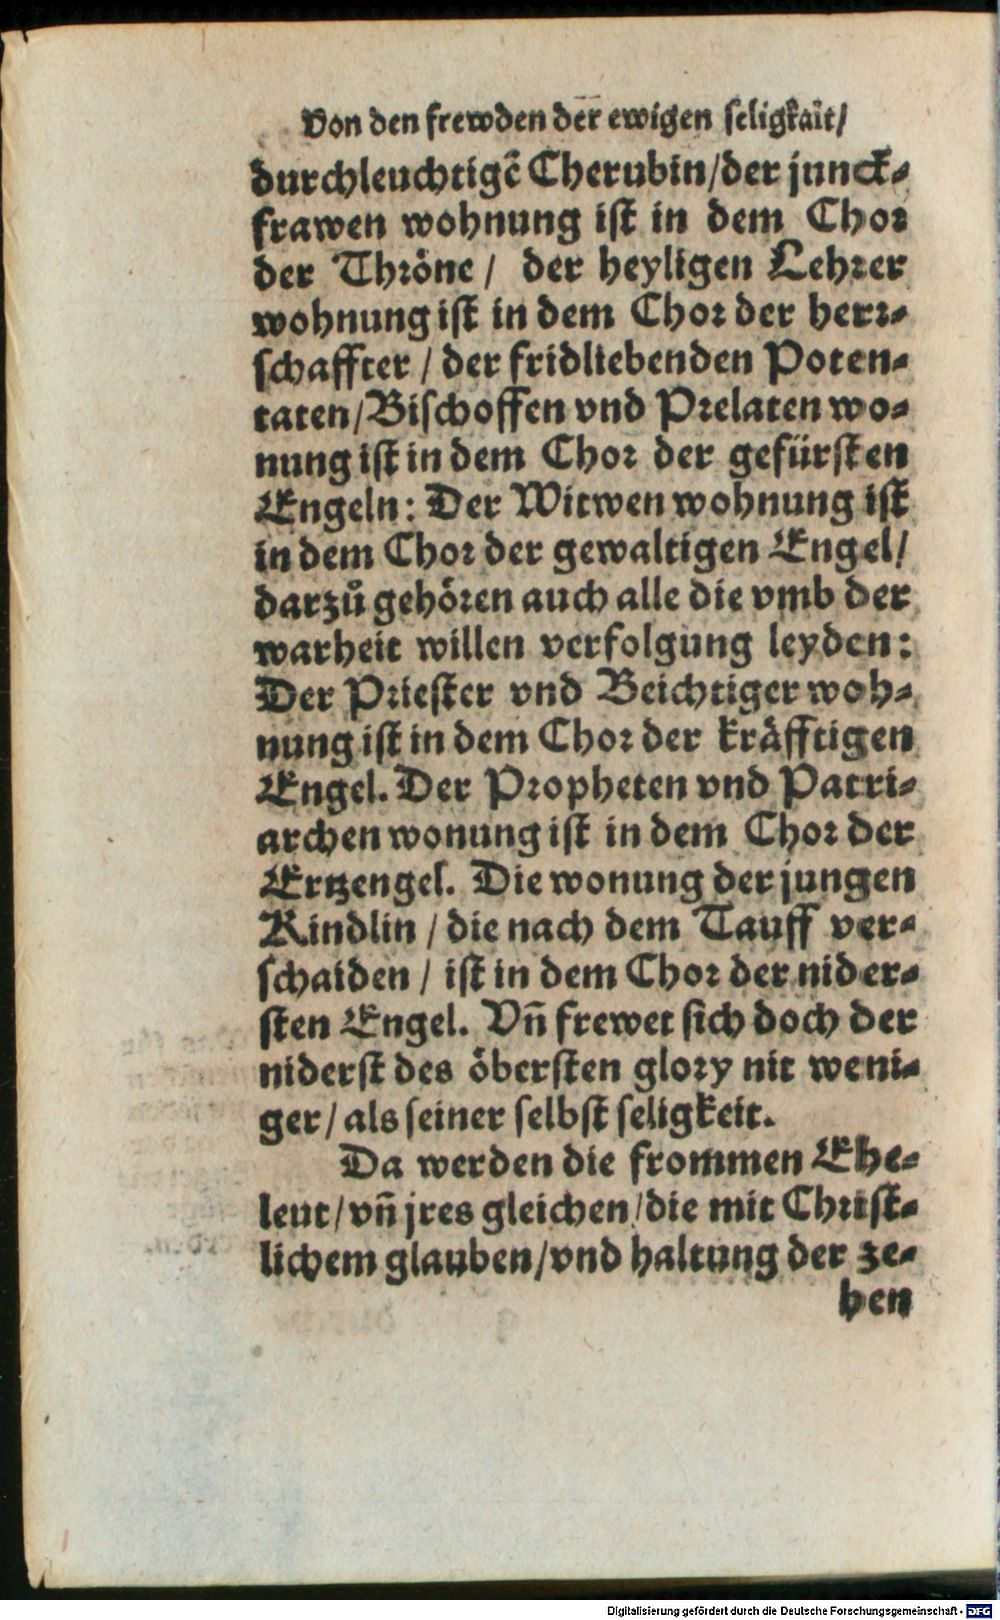 Von den frewden der ewigen seligkait/
durchleuchtigē Cherubin/der junck⸗
frawen wohnung ist in dem Chor
der Thröne / der heyligen Lehrer
wohnung ist in dem Chor der herr⸗
schaffter / der fridliebenden Poten⸗
taten/Bischoffen vnd Prelaten wo⸗
nung ist in dem Chor der gefürsten
Engeln: Der Witwen wohnung ist
in dem Chor der gewaltigen Engel/
darzů gehören auch alle die vmb der
warheit willen verfolgung leyden:
Der Priester vnd Beichtiger woh⸗
nung ist in dem Chor der kräfftigen
Engel. Der Propheten vnd Patri⸗
archen wonung ist in dem Chor der
Ertzengel. Die wonung der jungen
Kindlin / die nach dem Tauff ver⸗
schaiden / ist in dem Chor der nider⸗
sten Engel. Vñ frewet sich doch der
niderst des öbersten glory nit weni⸗
ger/als seiner selbst seligkeit.
Da werden die frommen Ehe⸗
leut/vñ jres gleichen/die mit Christ⸗
lichem glauben/vnd haltung der ze⸗
hen
Digitalisierung gefördert durch die Deutsche Forschungsgemeinschaft - DFG